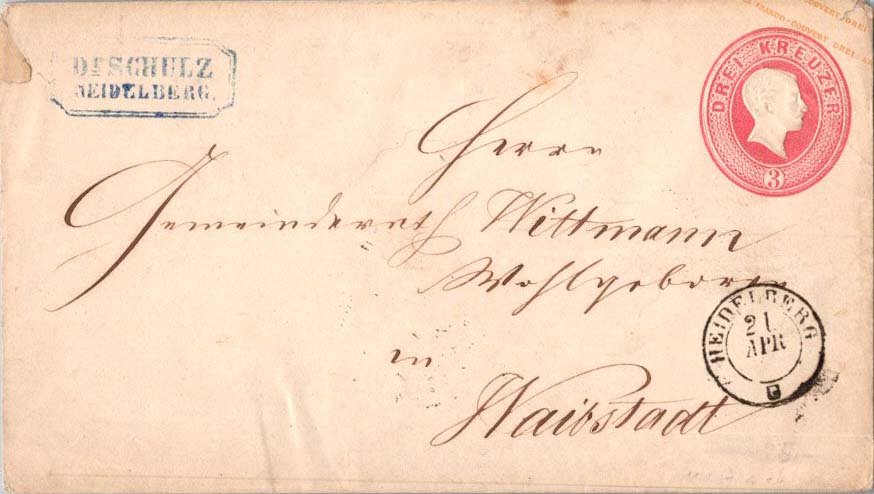 DR SCHULZ
HEIDELBERG.
FRANCO-COUVERT DREI
DREI KREUZER
3
Herrn
Gemeinderath Wittmann
Wohlgeboren
in
Waibstadt
HEIDELBERG
21
APR